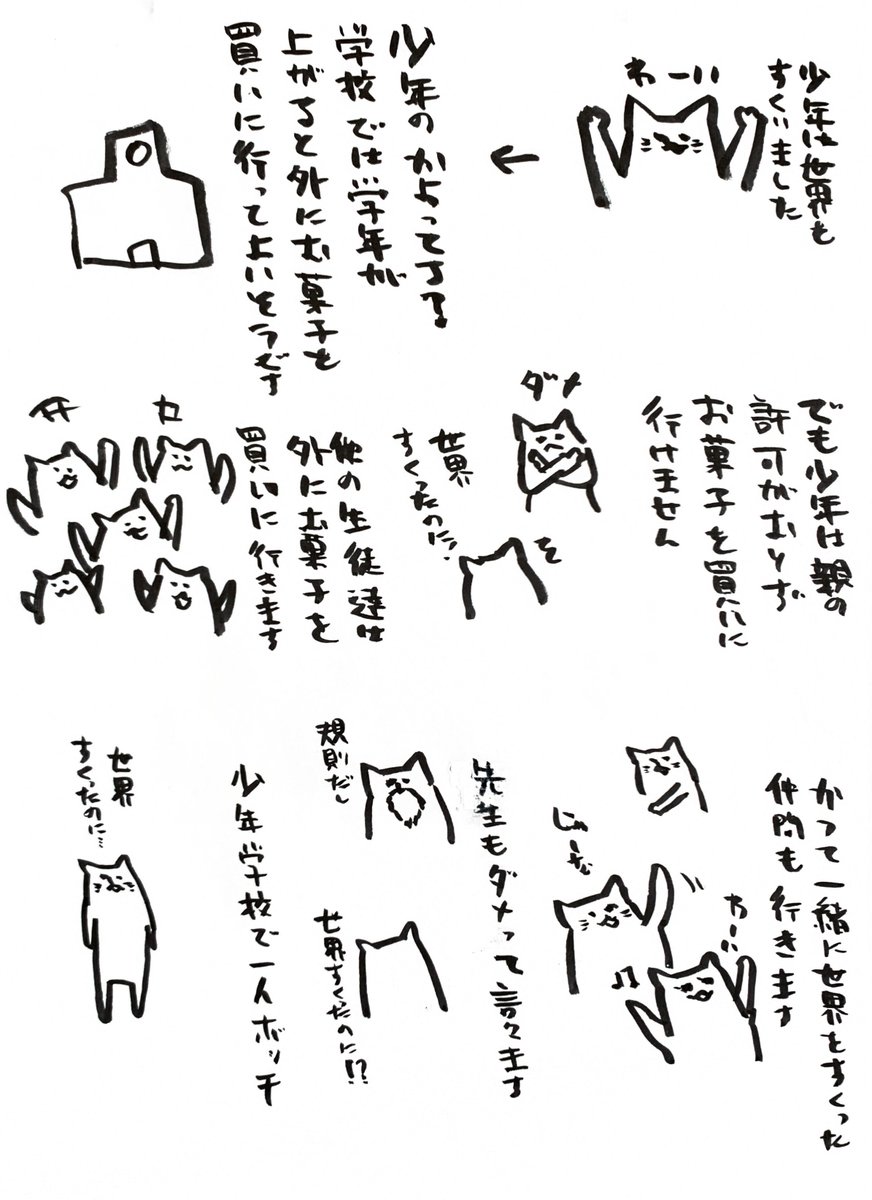 少年は世界を
すくいました
わーい
少年のかよってる
学校では学年が
上がると外にお菓子を
買いに行ってよいそうです
でも少年は親の
許可がおりず
お菓子を買いに
行けません
ダメ
え
世界
すくったのに…
他の生徒達は
外にお菓子を
買いに行きます
かつて一緒に世界をすくった
仲間も行きます
じゃーな
わーい
先生もダメって言います
規則だし
世界すくったのに!?
少年学校で一人ボッチ
世界
すくったのに…